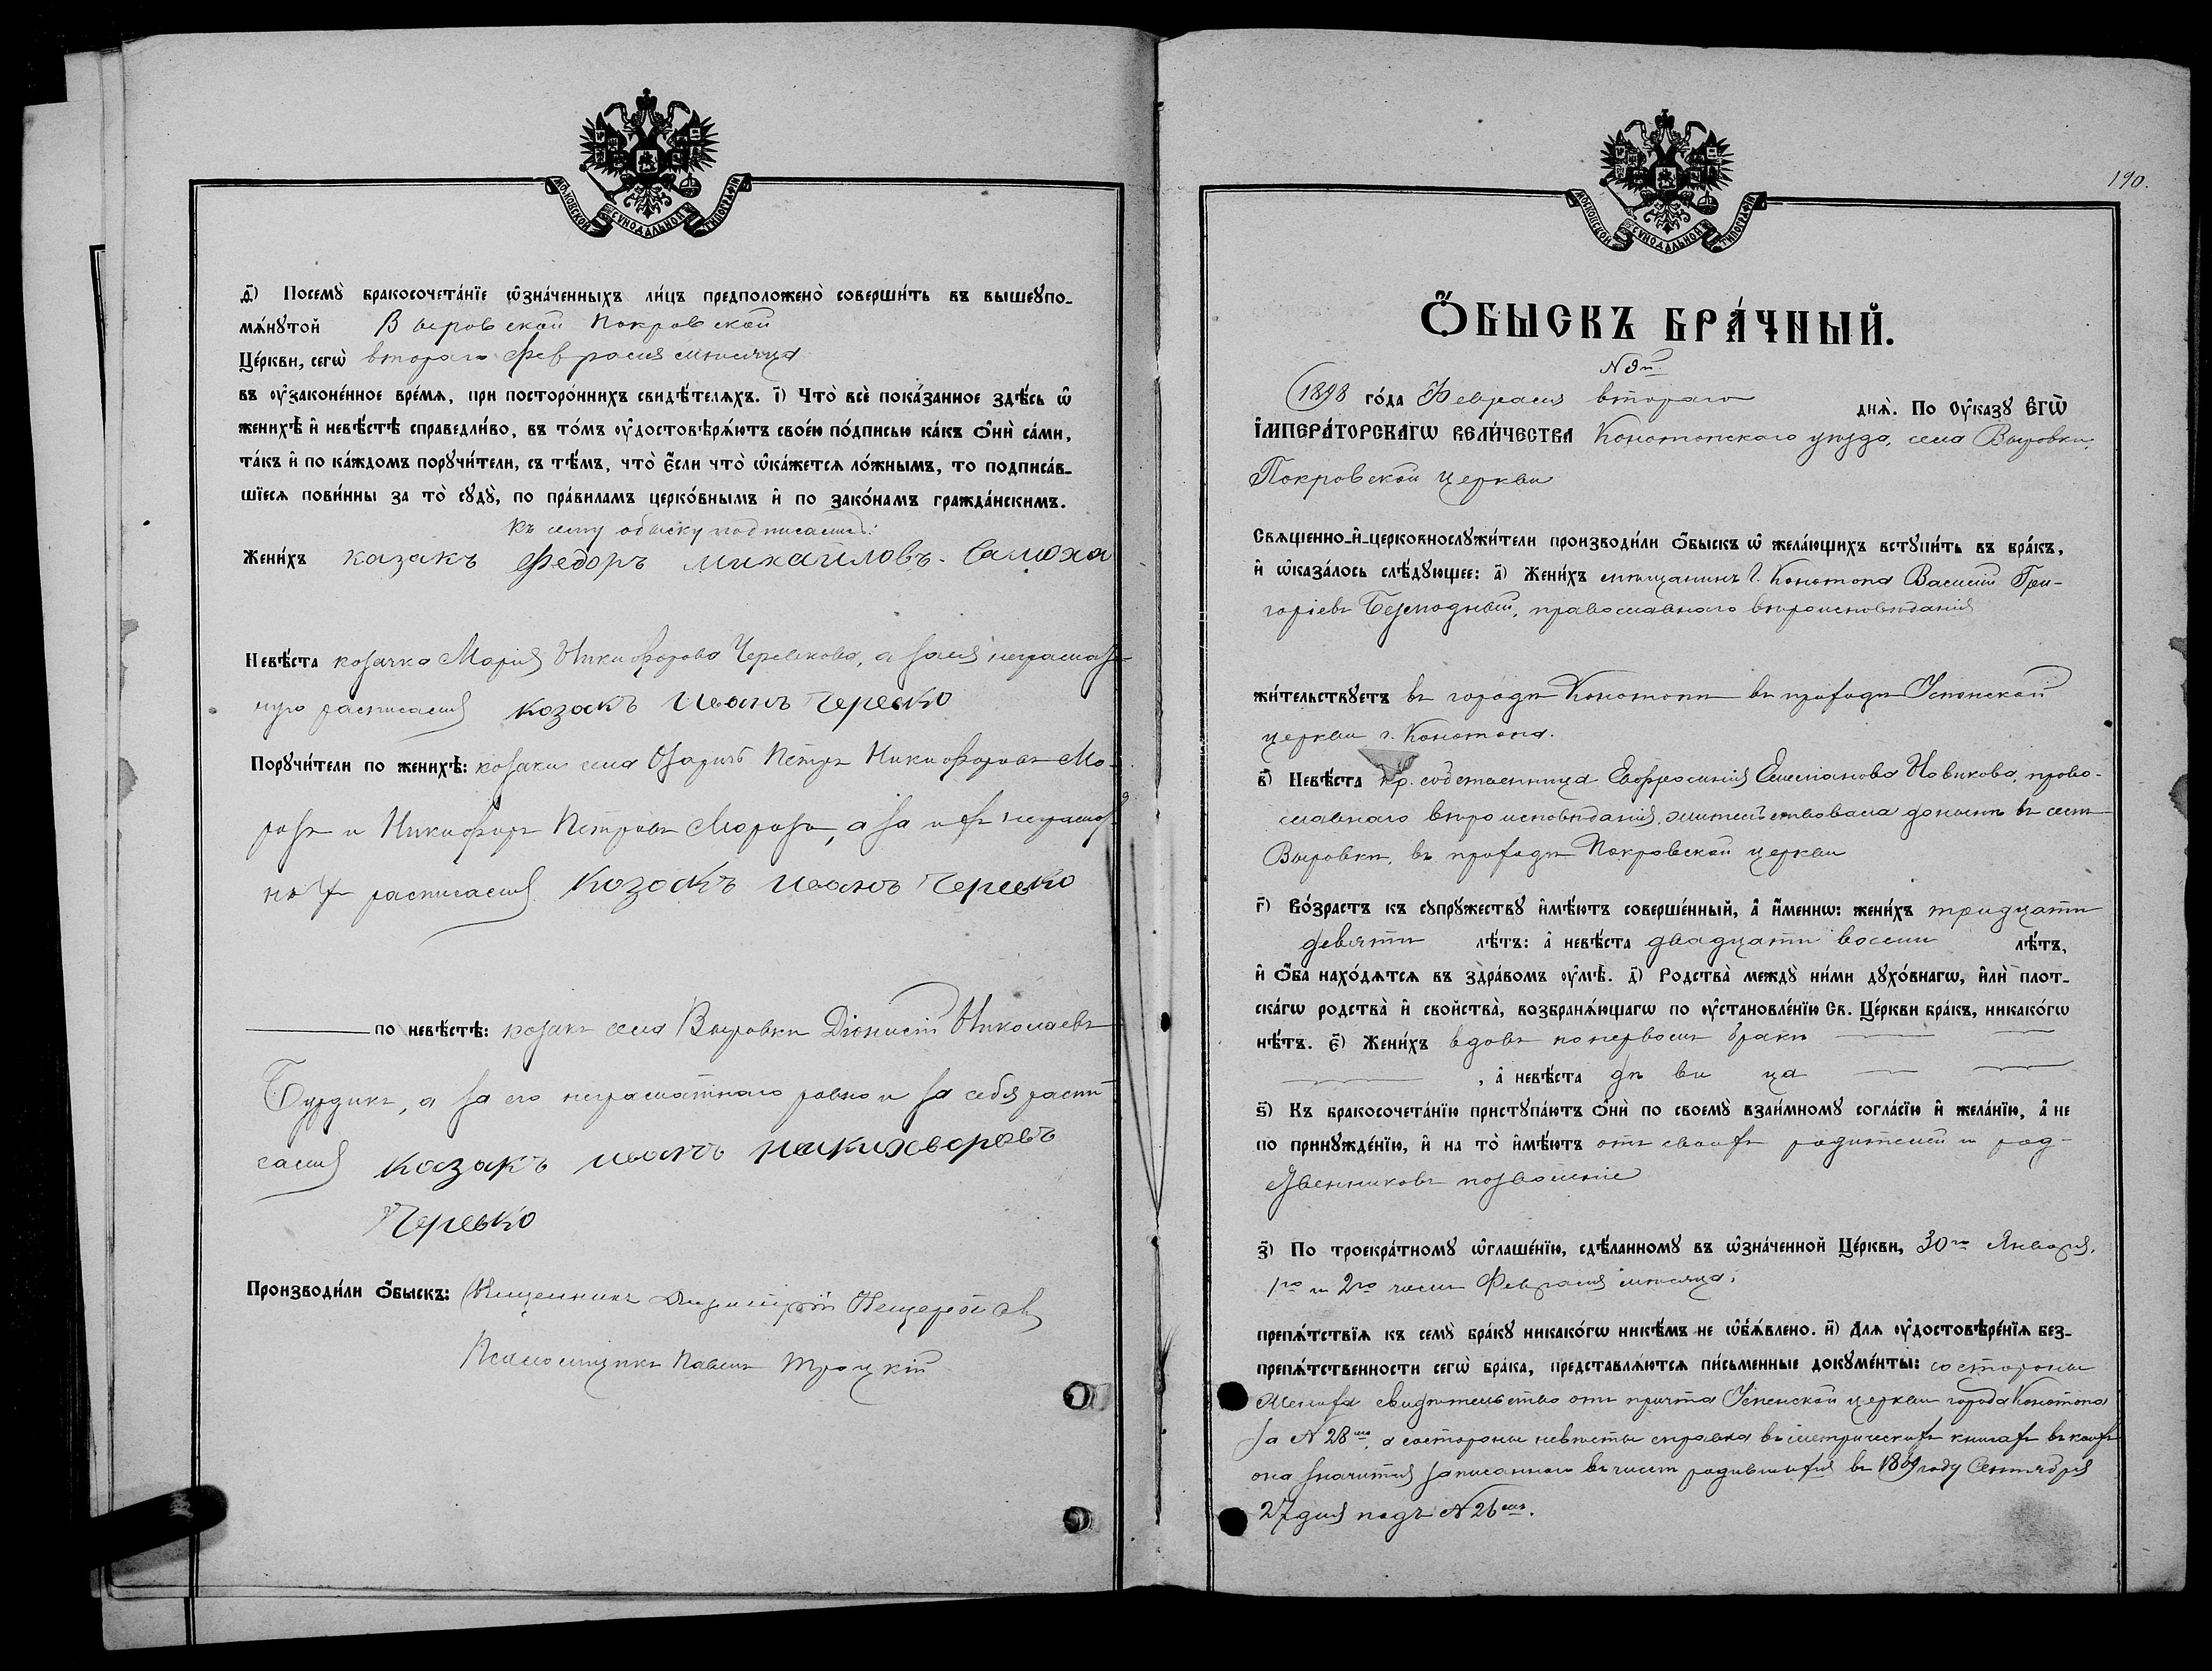 МОСКОВСКОЙ СѴНОДАЛЬНОЙ ТИПОГРАФІИ
д҃і) Посемꙋ̀ бракосочета́нїе ѡ҆зна́ченныхъ ли́цъ предположено̀ соверши́ть въ вышеꙋпо-
мѧ́нꙋтой Выровской Покровской
Це́ркви, сегѡ̀ втораго Февраля мѣсяца
въ ᲂу҆законе́нное вре́мѧ, при посторо́ннихъ свидѣ́телѧхъ. і҃) Что̀ всѐ пока́занное здѣ́сь ѡ҆
женихѣ̀ и҆ невѣ́стѣ справедли́во, въ то́мъ ᲂу҆достовѣрѧ́ютъ свое́ю по́дписью ка́къ ѻ҆нѝ са́ми,
та́къ и҆ по ка́ждомъ порꙋчи́тели, съ тѣ́мъ, что̀ є҆́сли что̀ ѡ҆ка́жетсѧ ло́жнымъ, то подписа́в-
шїесѧ пови́нны за то̀ сꙋдꙋ̀, по пра́виламъ церко́внымъ и҆ по зако́намъ гражда́нскимъ.
Къ сему обыску подписались:
Жени́хъ казакъ Федоръ михайловъ Самоха
Невѣ́ста козачка Марія Никифорова Черевкова, а за нея неграмат-
ную расписался козакъ Иванъ Черевко
Порꙋчи́тели по женихѣ̀: козаки села Озаричъ Петръ Никифоровъ Мо-
розъ и Никифоръ Петровъ Морозъ, а за ихъ неграмот-
ныхъ расписался Козакъ Иванъ Черевко
по невѣ́стѣ: козакъ села Выровки Діонисій Николаевъ
Бурдикъ, а за его неграматнаго равно и за себя распи-
сался Казакъ иванъ никихворовъ
Черевко
Производи́ли ѻ҆́быскъ: Священникъ Димитрій
Псаломщикъ Павелъ Троцкій
190.
МОСКОВСКОЙ СѴНОДАЛЬНОЙ ТИПОГРАФІИ
Ѻ҆́БЫСКЪ БРА́ЧНЫЙ.
1898 го́да Февраля втораго днѧ̀. По Оу҆ка́зꙋ Є҆гѡ̀
І҆мпера́торскагѡ Вели́чества Конотопскаго уѣзда, села Выровки,
Покровской церкви
Свѧще́нно-и҆-церковнослꙋжи́тели производи́ли ѻ҆́быскъ ѡ҆ жела́ющихъ встꙋпи́ть въ бра́къ,
и҆ ѡ҆каза́лось слѣ́дꙋющее: а҃) Жени́хъ мѣщанинъ г. Конотопа Василій Гри-
горіевъ православнаго вѣроисповѣданія
жи́тельствꙋетъ въ городѣ Конотопѣ въ приходѣ Успенской
церкви г. Конотопа.
в҃) Невѣ́ста кр. собственница Евфросинія Емеліанова Новикова, право-
славнаго вѣроисповѣданія, жительствовала донынѣ въ селѣ
Выровкѣ, въ приходѣ Покровской церкви
г҃) Во́зрастъ къ сꙋпрꙋ́жествꙋ и҆мѣ́ютъ соверше́нный, а҆ и҆́меннѡ: жени́хъ тридцати
девяти лѣ́тъ: а҆ невѣ́ста двадцати восьми лѣ́тъ,
и҆ ѻ҆́ба нахо́дѧтсѧ въ здра́вомъ ᲂу҆мѣ̀. д҃) Родства̀ междꙋ̀ ни́ми дꙋхо́внагѡ, и҆лѝ плот-
ска́гѡ родства̀ и҆ свойства̀, возбранѧ́ющагѡ по ᲂу҆становле́нїю Св. Це́ркви бра́къ, никако́гѡ
нѣ́тъ. є҃) Жени́хъ вдовъ по первомъ бракѣ
, а҆ невѣ́ста дѣвица
ѕ҃) Къ бракосочета́нїю пристꙋпа́ютъ ѻ҆нѝ по своемꙋ̀ взаи́мномꙋ согла́сїю и҆ жела́нїю, а҆ не
по принꙋжде́нїю, и҆ на то̀ и҆мѣ́ютъ отъ своихъ родителей и род-
ственниковъ позволеніе
з҃) По троекра́тномꙋ ѡ҆глаше́нїю, сдѣ́ланномꙋ въ ѡ҆зна́ченной Це́ркви, 30го Января,
1го и 2го числъ Февраля мѣсяца,
препѧ́тствїѧ къ семꙋ̀ бра́кꙋ никако́гѡ никѣ́мъ не ѡ҆б̾ѧ́влено. и҃) Для ᲂу҆достовѣре́нїѧ без-
препѧ́тственности сегѡ̀ бра́ка, представлѧ́ютсѧ пи́сьменные докꙋме́нты: со стороны
Жениха свидѣтельство отъ причта Успенской церкви города Конотопа
за N 28мъ, а со стороны невѣсты справка въ метрическихъ книгахъ въ коихъ
она значится записанною въ числѣ родившихся въ 1869 году Сентября
27 дня подъ N 26мъ.